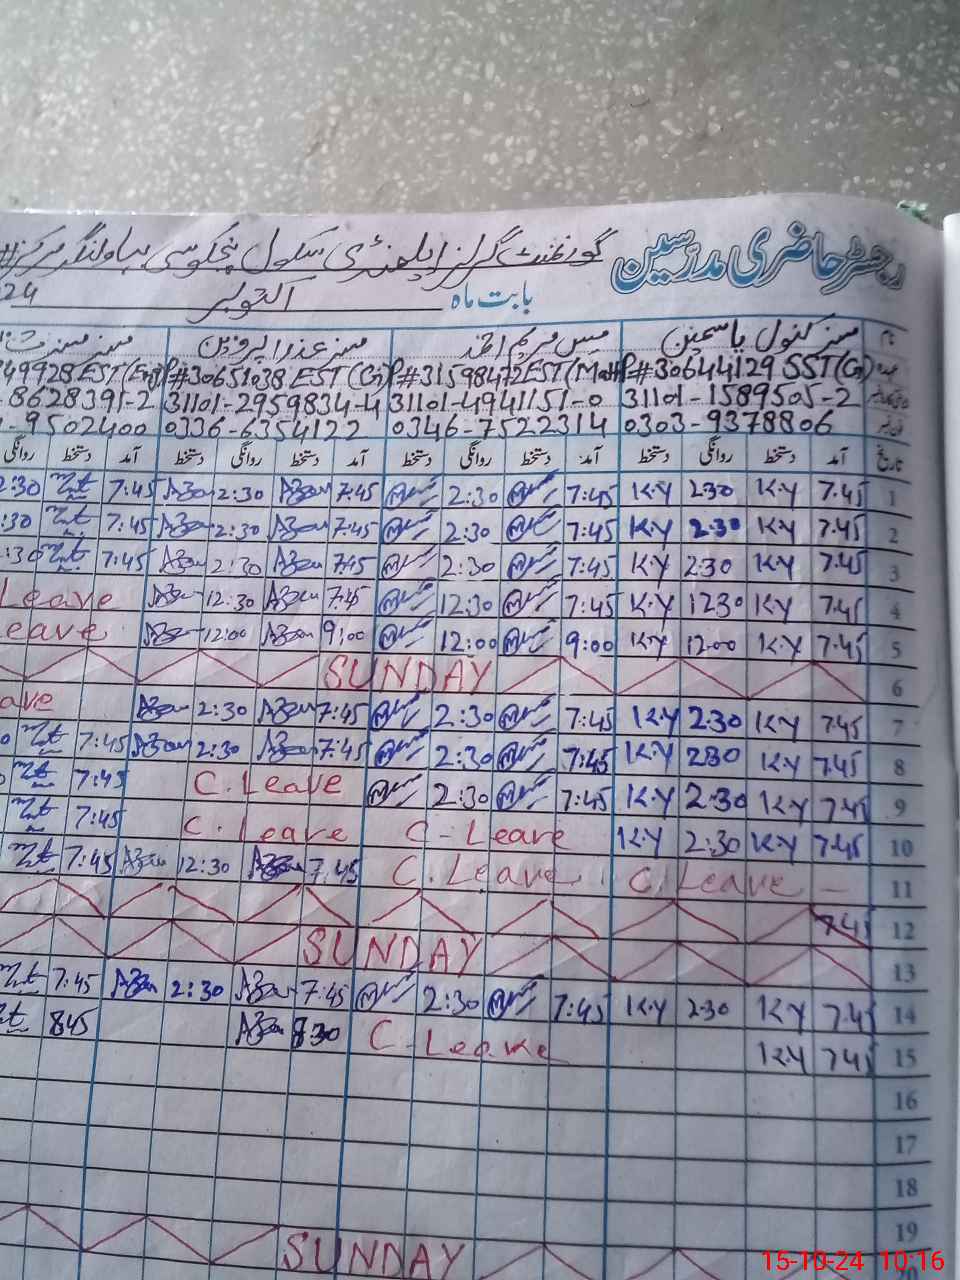 رجسٹر حاضری مدرسین گورنمنٹ گرلز ایلیمنٹری سکول
بابت ماہ اکتوبر 24
نام مسز کنول یاسمین مس مریم احمد مسز عذرا پروین مسز
P#30644129 SST(G) P#31598472 EST(Math) P#30651038 EST(G) 49928 EST(Eng)
31101-1589505-2 31101-4941151-0 31101-2959834-4 8628391-2
0303-9378806 0346-7522314 0336-6354122 9502400
تاریخ آمد دستخط روانگی دستخط آمد دستخط روانگی دستخط آمد دستخط روانگی دستخط آمد دستخط روانگی
1 7.45 K.Y 2:30 K.Y 7:45 2:30 7:45 2:30 7:45 2:30
2 7.45 K.Y 2:30 K.Y 7:45 2:30 7:45 2:30 7:45 :30
3 7.45 K.Y 2:30 K.Y 7:45 2:30 7:45 2:30 7:45 :30
4 7.45 K.Y 1230 K.Y 7:45 12:30 7:45 12:30 Leave
5 7.45 K.Y 12:00 K.Y 9:00 12:00 9:00 12:00 Leave
6 SUNDAY
7 7.45 K.Y 2:30 K.Y 7:45 2:30 7:45 2:30 ave
8 7.45 K.Y 2:30 K.Y 7:45 2:30 7:45 2:30 7:45
9 7.45 K.Y 2:30 K.Y 7:45 2:30 C. Leave 7:45
10 7.45 K.Y 2:30 K.Y C - Leave C. Leave 7:45
11 C. Leave - C. Leave 7.45 12:30 7:45
12 7.45
13 SUNDAY
14 7.45 K.Y 2:30 K.Y 7:45 2:30 7:45 2:30 7:45
15 7.45 K.Y C - Leave 8:30 845
16
17
18
19
20 SUNDAY
15-10-24 10:16